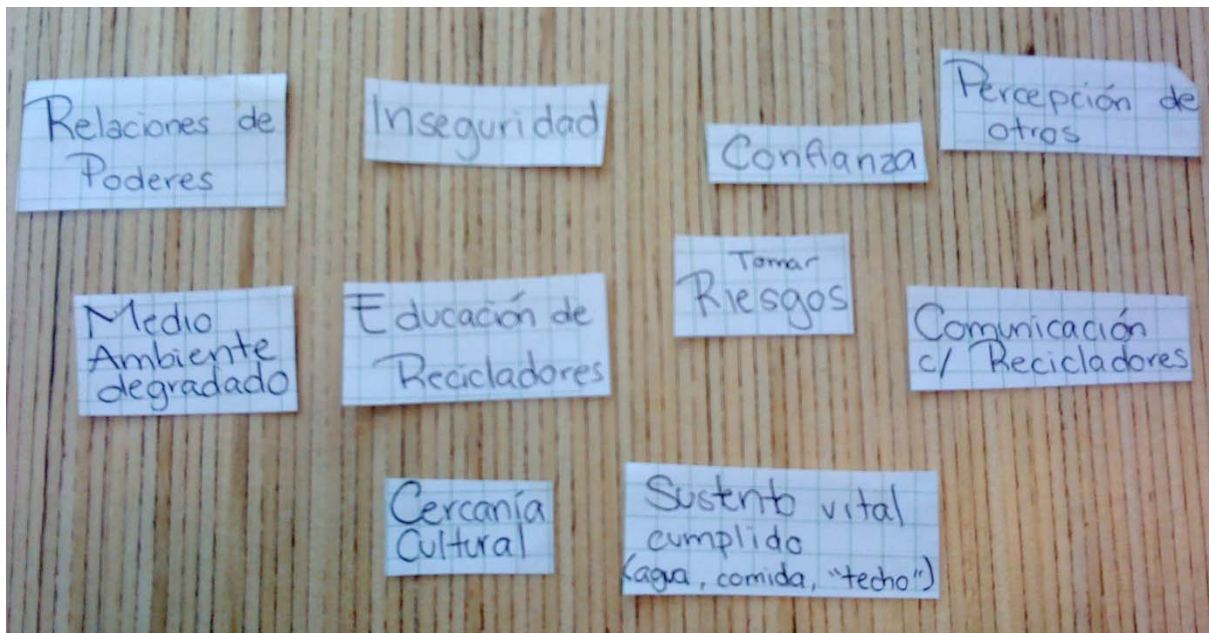 Relaciones de
Poderes
Inseguridad
Confianza
Percepción de
otros
Medio
Ambiente
degradado
Educación de
Recicladores
Tomar
Riesgos
Comunicación
c/ Recicladores
Cercanía
Cultural
Sustento vital
cumplido
(agua, comida, "techo")